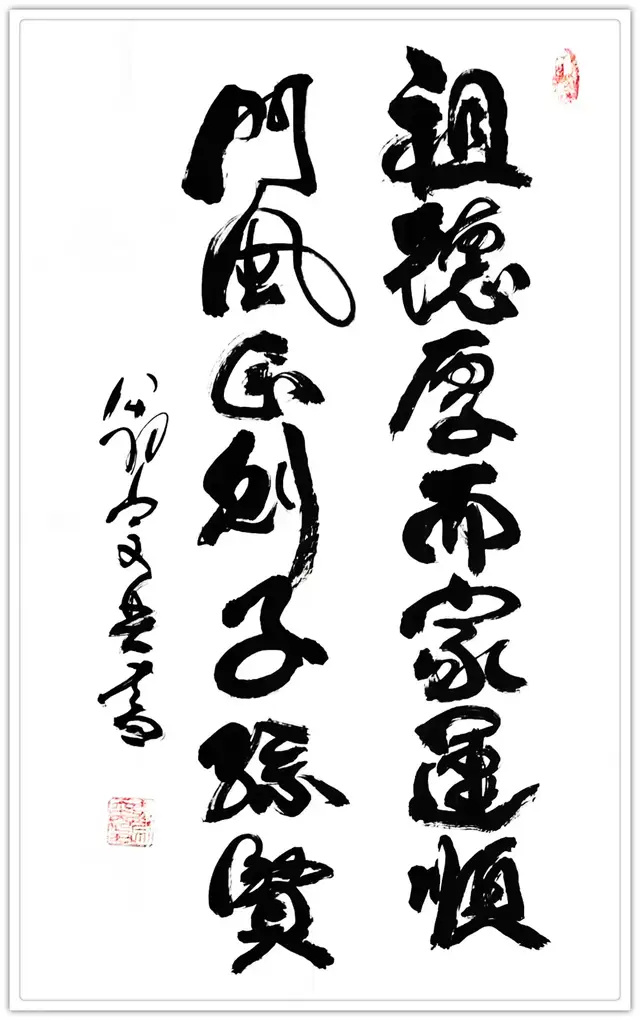 祖德厚而家運順
門風正則子孫賢